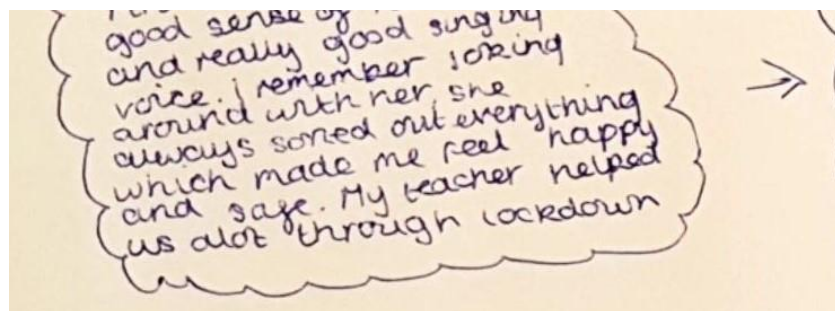 good sense of
and really good singing
voice. I remember joking
around with her she
always sorted out everything
which made me feel happy
and safe. My teacher helped
us alot through lockdown